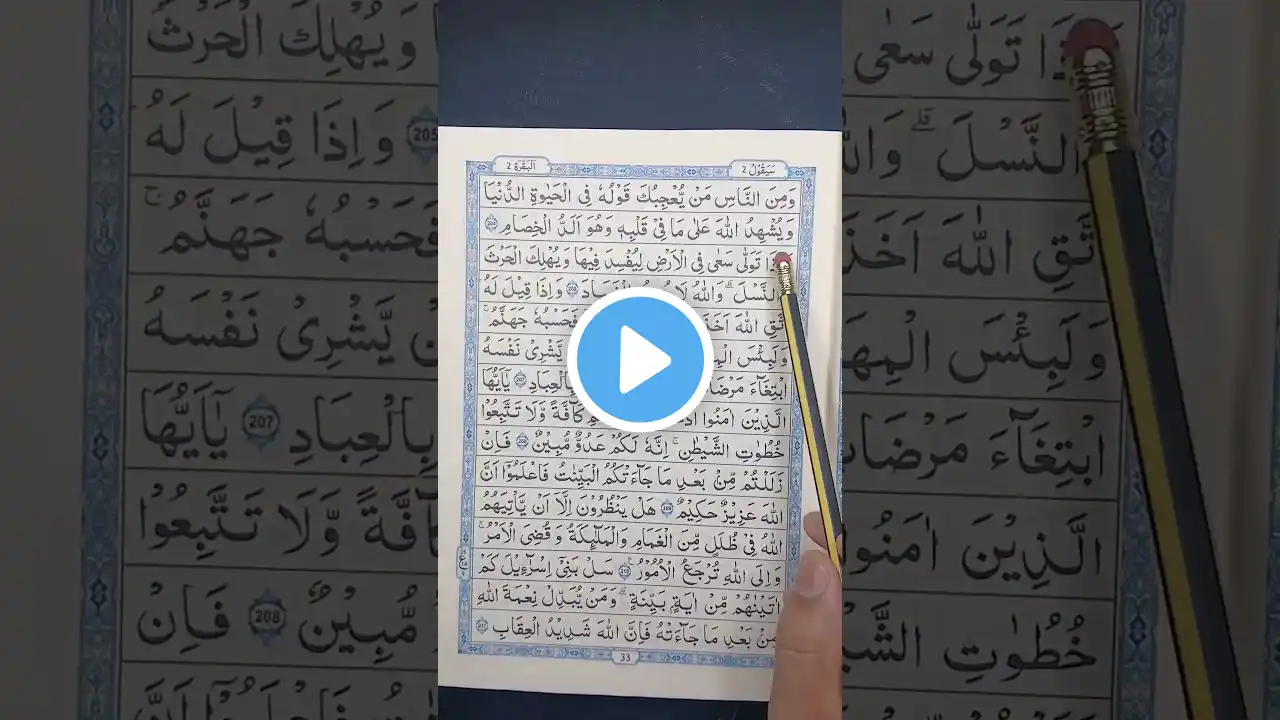 سَيَقُوْلُ 2 اَلْبَقَرَة 2
وَمِنَ النَّاسِ مَنْ يُّعْجِبُكَ قَوْلُهٗ فِى الْحَيٰوةِ الدُّنْيَا
وَيُشْهِدُ اللّٰهَ عَلٰى مَا فِىْ قَلْبِهٖ وَهُوَ اَلَدُّ الْخِصَامِ 204
تَوَلّٰى سَعٰى فِى الْاَرْضِ لِيُفْسِدَ فِيْهَا وَيُهْلِكَ الْحَرْثَ
النَّسْلَ ؕ وَاللّٰهُ لَا 205 وَاِذَا قِيْلَ لَهُ
اللّٰهَ فَحَسْبُهٗ جَهَنَّمُ ؕ
وَلَبِئْسَ يَّشْرِىْ نَفْسَهُ
ابْتِغَآءَ بِالْعِبَادِ 207 يٰۤاَيُّهَا
الَّذِيْنَ اٰمَنُوا كَآفَّةً وَّلَا تَتَّبِعُوْا
خُطُوٰتِ الشَّيْطٰنِ ؕ اِنَّهٗ لَكُمْ عَدُوٌّ مُّبِيْنٌ 208 فَاِنْ
زَلَلْتُمْ مِّنْۢ بَعْدِ مَا جَآءَتْكُمُ الْبَيِّنٰتُ فَاعْلَمُوْۤا اَنَّ
اللّٰهَ عَزِيْزٌ حَكِيْمٌ 209 هَلْ يَنْظُرُوْنَ اِلَّاۤ اَنْ يَّاْتِيَهُمُ
اللّٰهُ فِىْ ظُلَلٍ مِّنَ الْغَمَامِ وَالْمَلٰٓئِكَةُ وَقُضِىَ الْاَمْرُ ؕ
وَاِلَى اللّٰهِ تُرْجَعُ الْاُمُوْرُ 210 سَلْ بَنِىْۤ اِسْرَآءِيْلَ كَمْ
اٰتَيْنٰهُمْ مِّنْ اٰيَةٍۭ بَيِّنَةٍ ؕ وَمَنْ يُّبَدِّلْ نِعْمَةَ اللّٰهِ
مِنْۢ بَعْدِ مَا جَآءَتْهُ فَاِنَّ اللّٰهَ شَدِيْدُ الْعِقَابِ 211
33